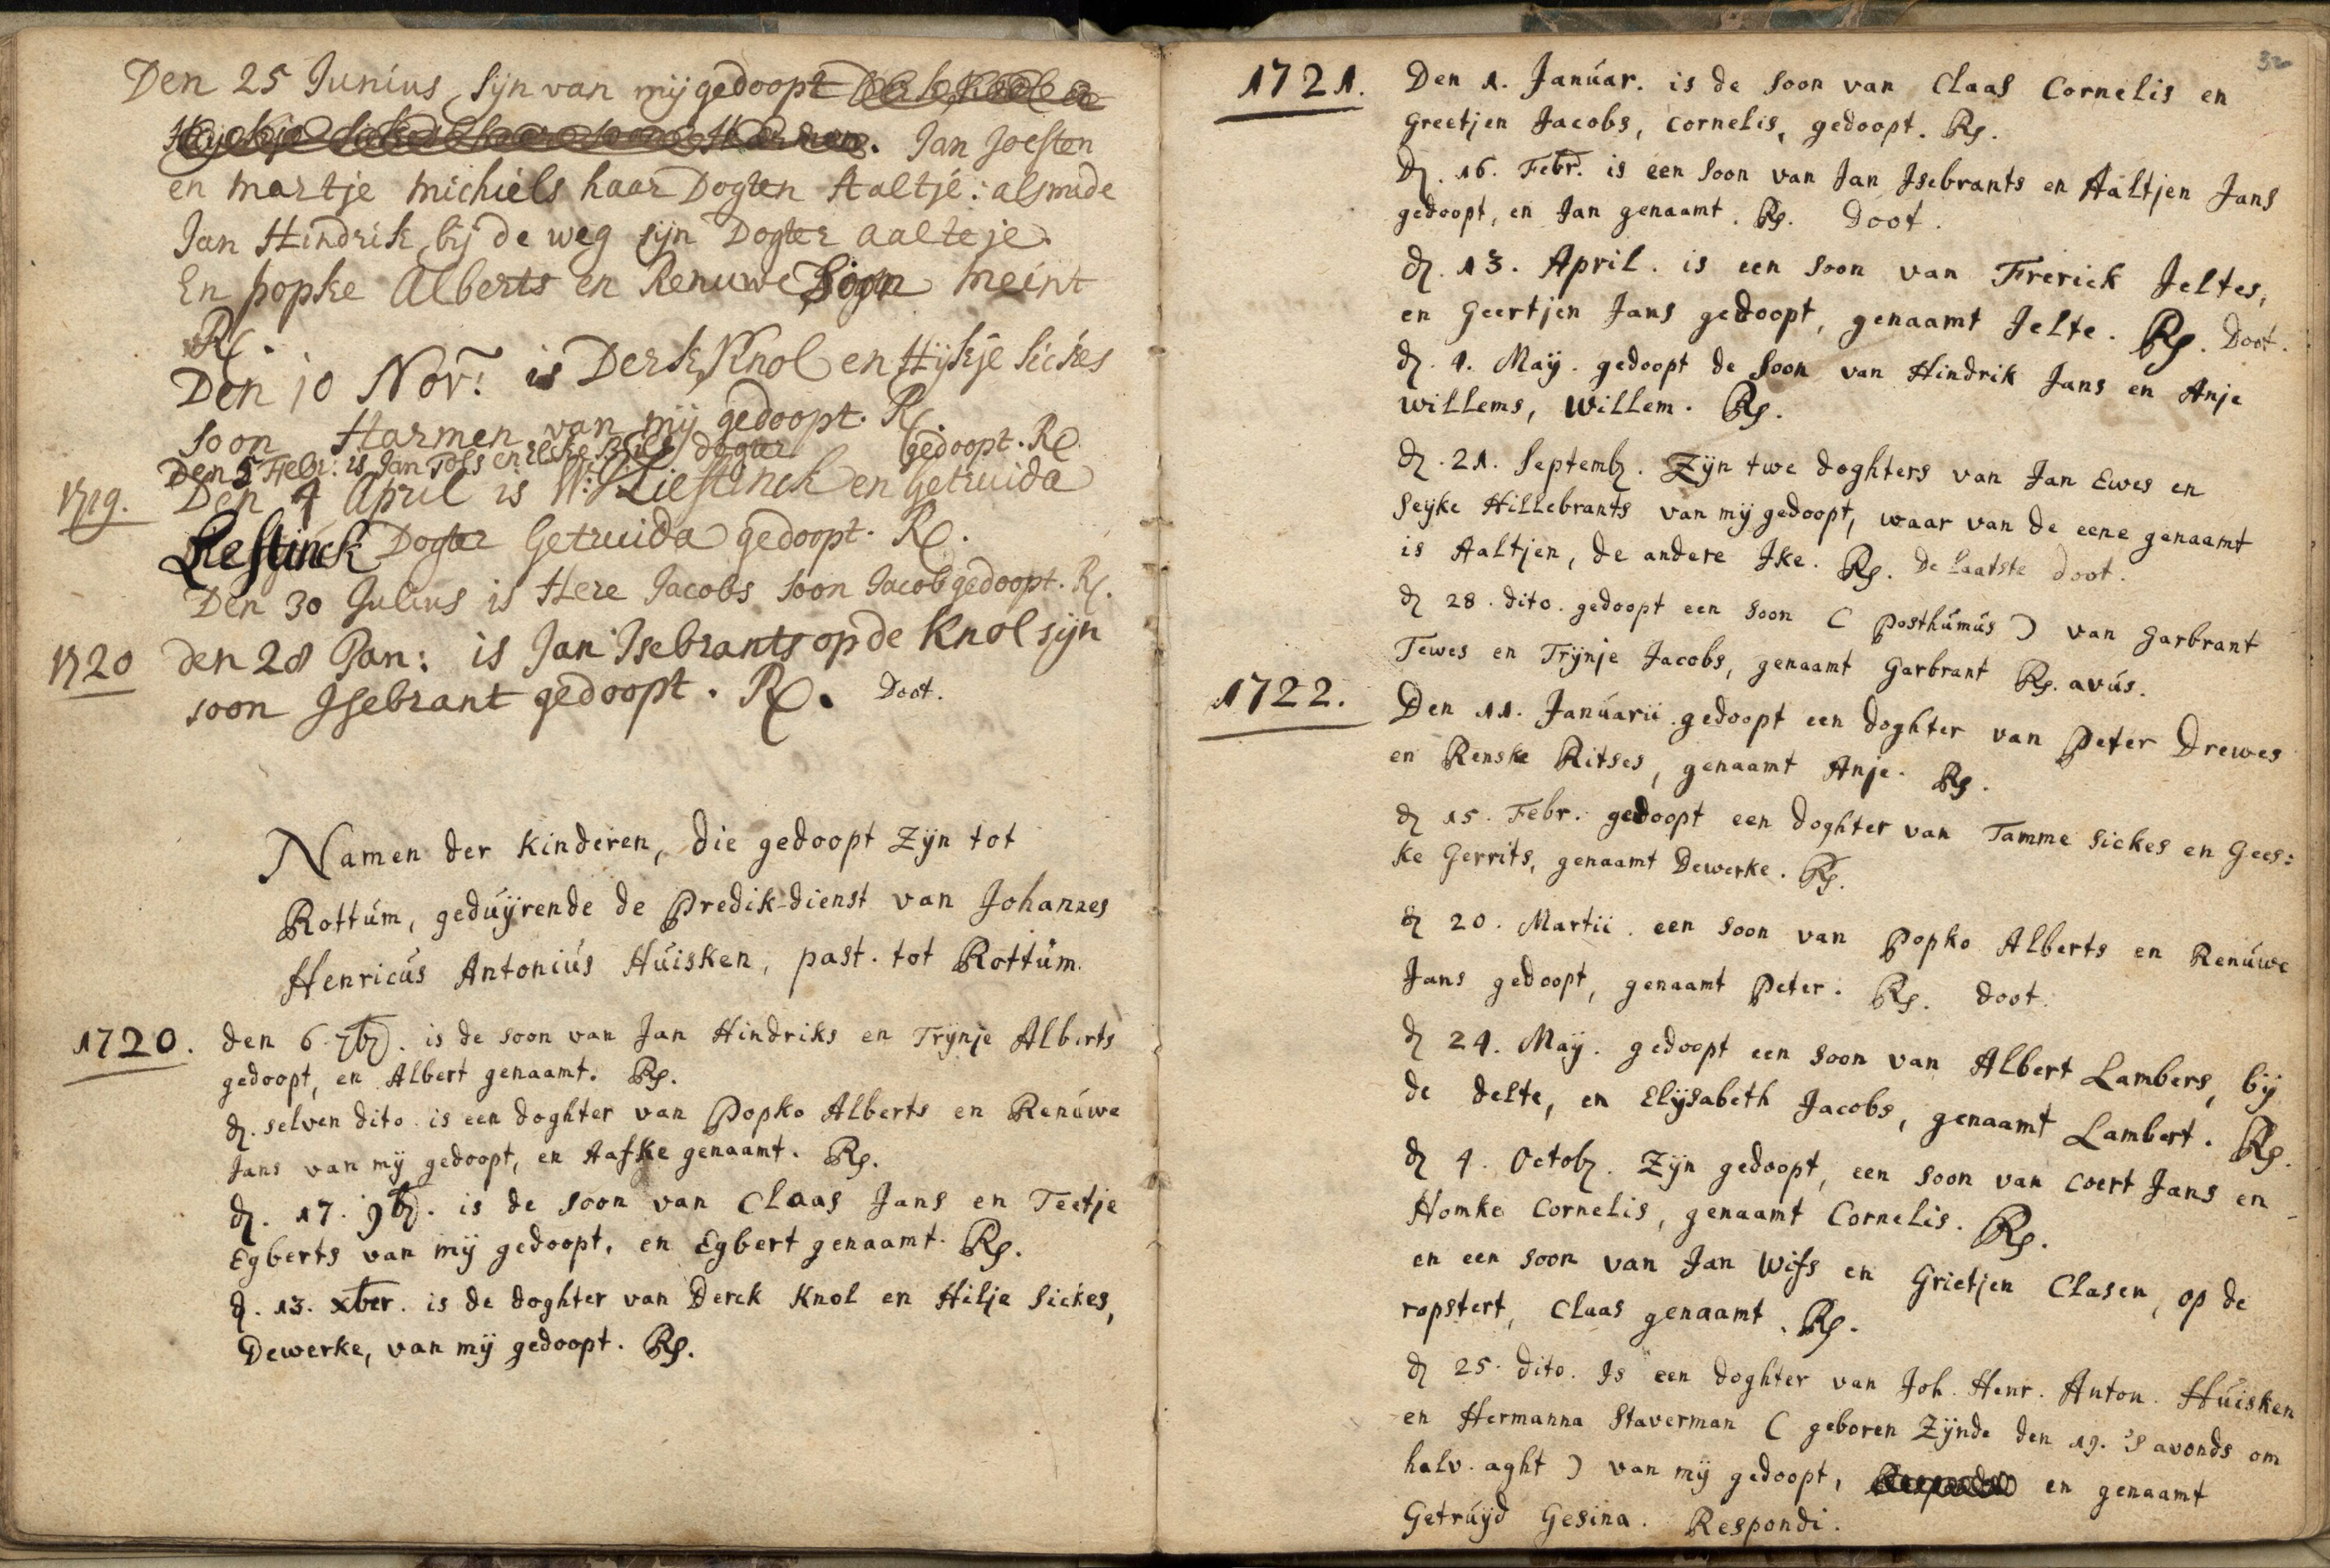 Den 25 Junius sijn van mij gedoopt
Jan Joesten
en martje michiels haar Dogten Aaltje: alsmede
Jan Hindrik bij de weg sijn Dogter aalteje.
En popke Alberts en Renuwe Soon meint
R.
Den 10 Nov: is Derk Knol en Hijkje sickes
soon Harmen van mij gedoopt. R.
Den 5 Febr: is Jan dogter gedoopt. R
1719. Den 4 April is W: Liestinck en Getruida
Restinck Dogter Getruida gedoopt. R.
Den 30 Julius is Here Jacobs soon Jacob gedoopt. R.
1720 den 28 Jan: is Jan Isebrants op de Knol sijn
soon Isebrant gedoopt. R. Doot.
Namen der kinderen, die gedoopt zÿn tot
Rottúm, gedúÿrende de Predik-dienst van Johannes
Henricús Antoniús Húisken, past. tot Rottúm.
1720. den 6. 7br. is de soon van Jan Hindriks en Trÿnje Alberts
gedoopt, en Albert genaamt. Rs.
d. selven dito is een doghter van Popko Alberts en Renúwe
Jans van mÿ gedoopt, en Aafke genaamt. Rs.
d. 17. 9br. is de soon van Claas Jans en Teetje
Egberts van mÿ gedoopt, en Egbert genaamt. Rs.
d. 13. xber. is de doghter van Derck Knol en Hilje Sickes,
Dewerke, van mÿ gedoopt. Rs.
32
1721. Den 1. Janúar. is de soon van Claas Cornelis en
Greetjen Jacobs, cornelis, gedoopt. Rs.
d. 16. Febr. is een soon van Jan Isebrants en Aaltjen Jans
gedoopt, en Jan genaamt. Rs. Doot.
d. 13. April. is een soon van Frerick Jeltes,
en Geertjen Jans gedoopt, genaamt Jelte. Rs. Doot.
d. 4. Maÿ. gedoopt de soon van Hindrik Jans en Anje
willems, willem. Rs.
d. 21. Septemb. Zÿn twe doghters van Jan Ewes en
Seÿke Hillebrants van mÿ gedoopt, waar van de eene genaamt
is Aaltjen, de andere Ike. Rs. De laatste doot.
d 28. dito. gedoopt een soon (Posthúmús) van Garbrant
Tewes en Trÿnje Jacobs, genaamt Garbrant Rs. avús.
1722. Den 11. Janúarii gedoopt een doghter van Peter Drewes
en Renske Ritses, genaamt Anje. Rs.
d 15. Febr. gedoopt een doghter van Tamme Sickes en Gees:
ke Gerrits, genaamt Dewerke. Rs.
d 20. Martii. een soon van Popko Alberts en Renúwe
Jans gedoopt, genaamt Peter. Rs. doot.
d 24. Maÿ. gedoopt een soon van Albert Lambers, bÿ
de delte, en Elÿsabeth Jacobs, genaamt Lambert. Rs.
d 4. Octob. Zÿn gedoopt, een soon van Coert Jans en
Homke Cornelis, genaamt Cornelis. Rs.
en een soon van Jan Wifs en Grietjen Clasen, op de
ropstert, Claas genaamt. Rs.
d 25. dito. Is een doghter van Joh. Henr. Anton. Húisken
en Hermanna Staverman (geboren Zÿnde den 19. 's avonds om
halv. aght) van mÿ gedoopt, en genaamt
Getrúÿd Gesina. Respondi.